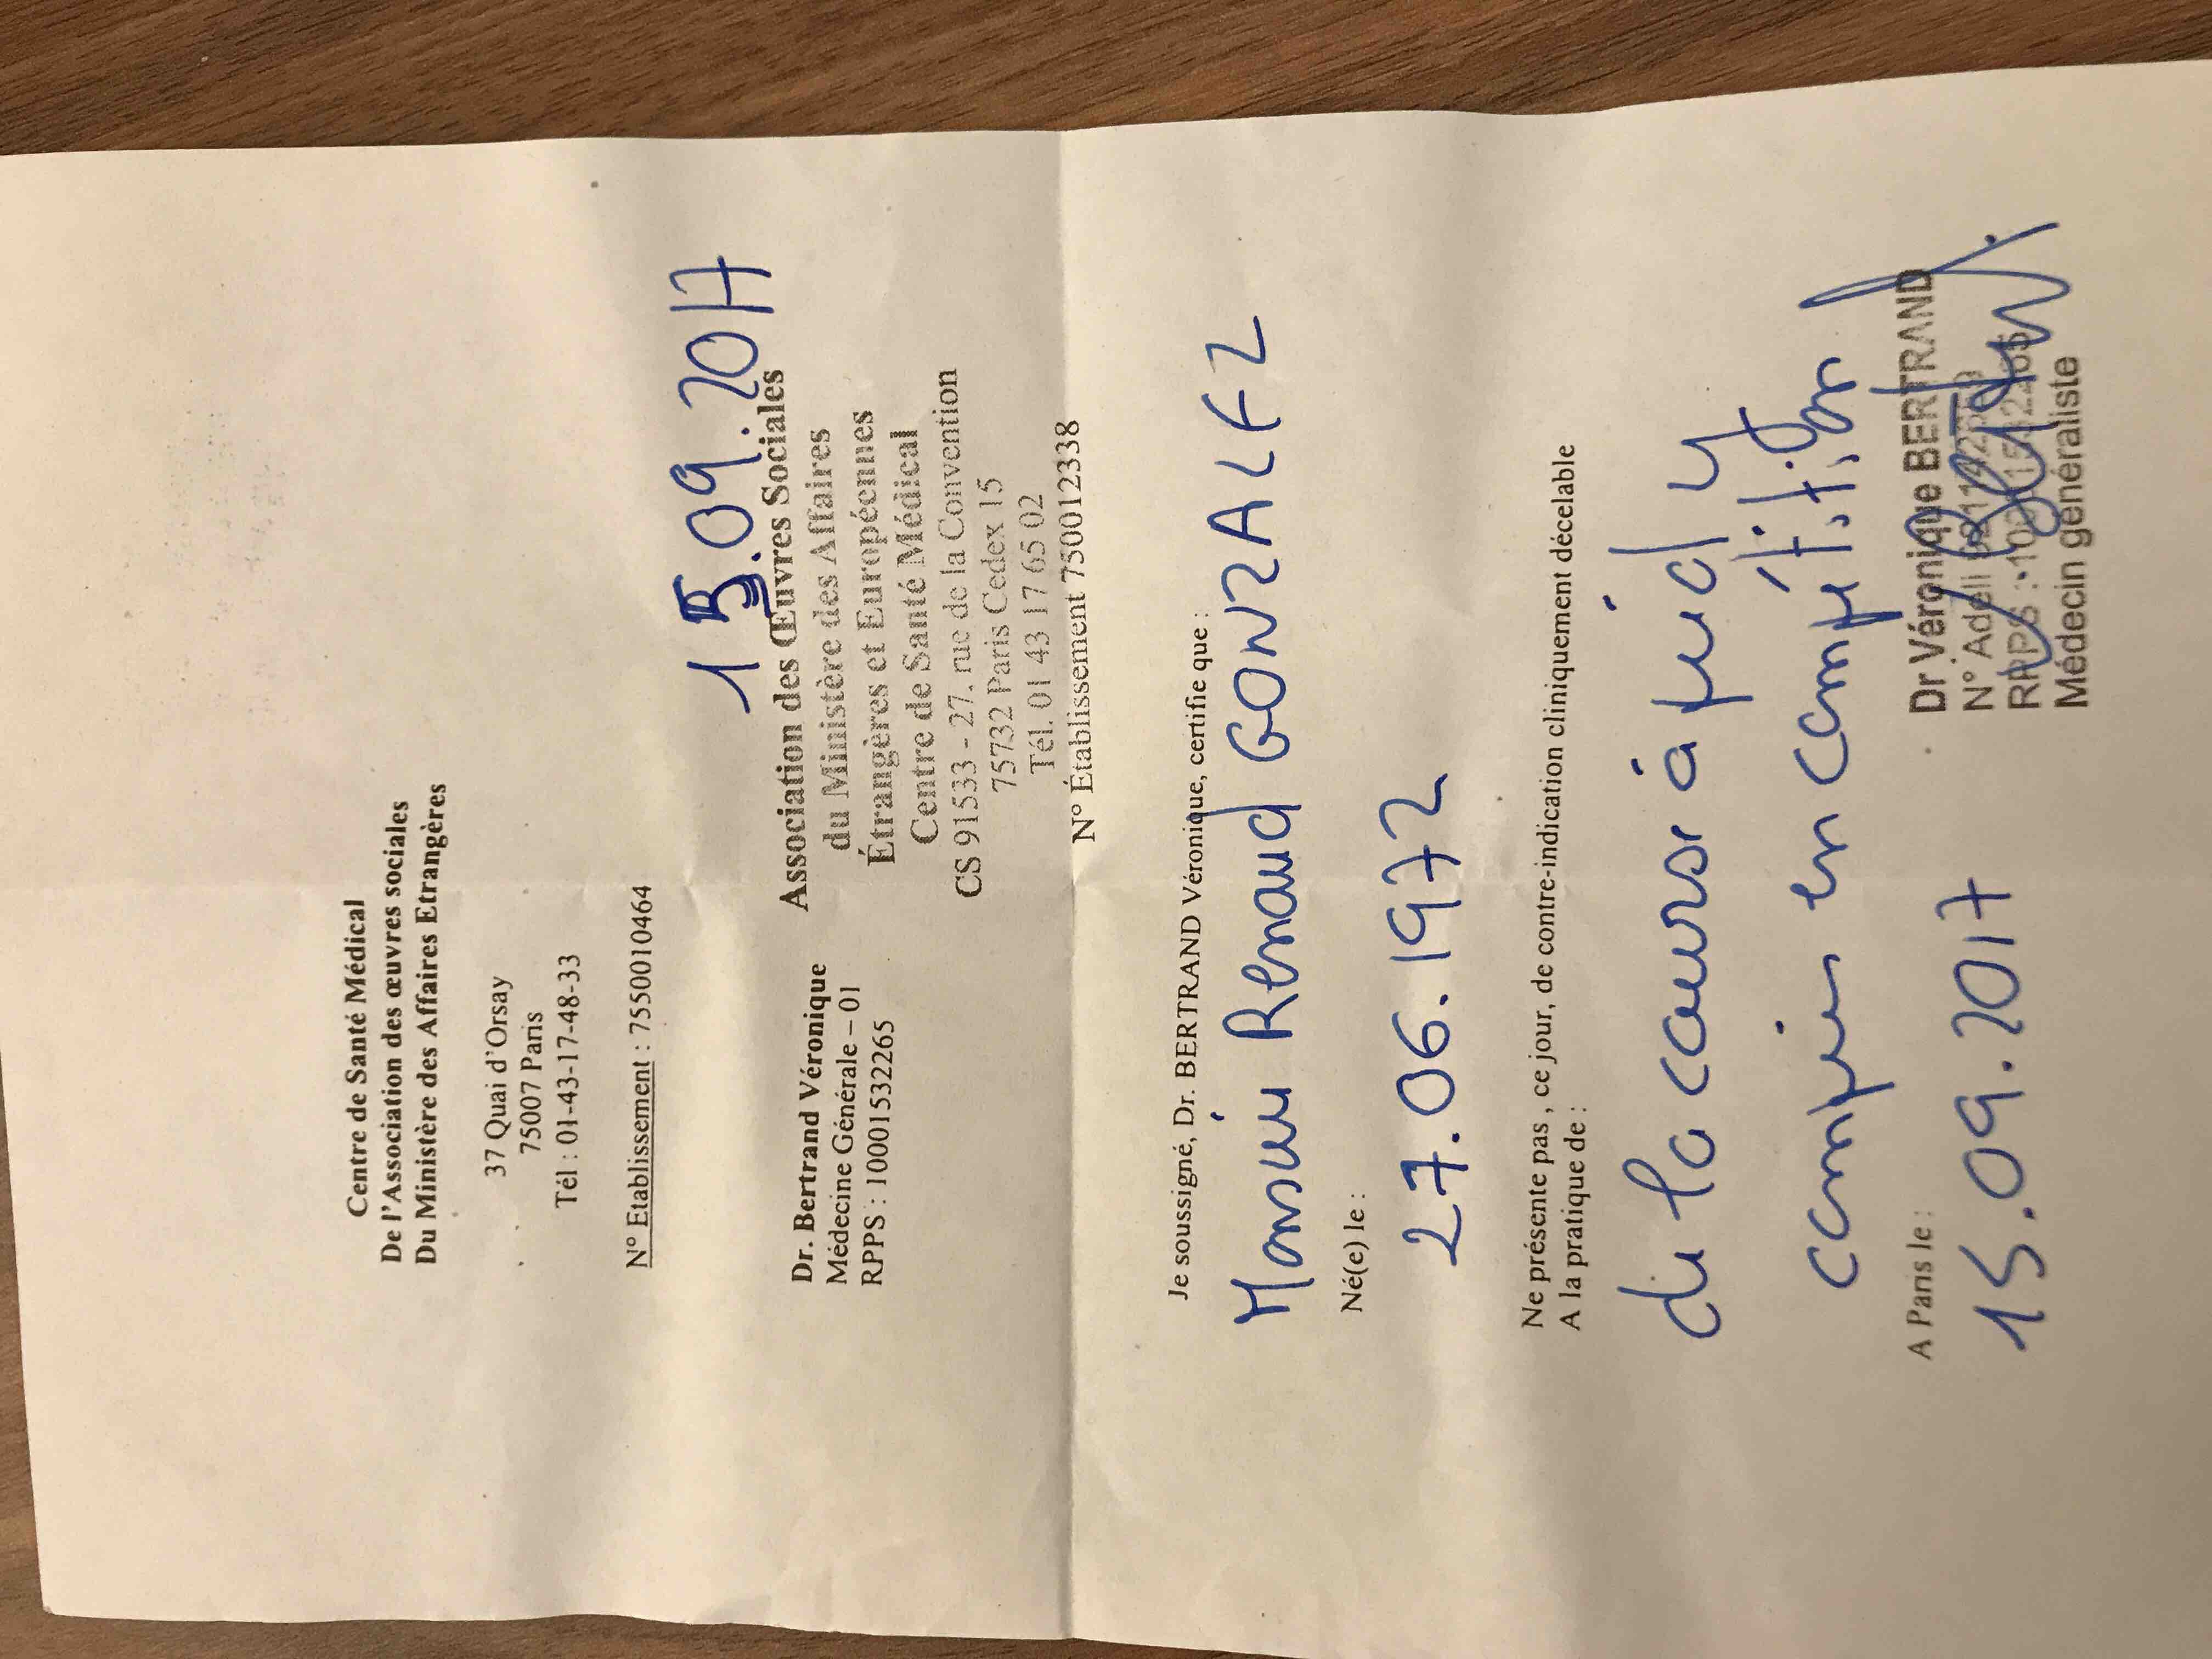 Centre de Santé Médical
De l'Association des œuvres sociales
Du Ministère des Affaires Etrangères
37 Quai d'Orsay
75007 Paris
Tél : 01-43-17-48-33
N° Etablissement : 7550010464
15.09.2017
Dr. Bertrand Véronique
Médecine Générale – 01
RPPS : 10001532265
Association des Œuvres Sociales
du Ministère des Affaires
Étrangères et Européennes
Centre de Santé Médical
CS 91533 - 27, rue de la Convention
75732 Paris Cedex 15
Tél. 01 43 17 65 02
N° Établissement 750012338
Je soussigné, Dr. BERTRAND Véronique, certifie que :
Monsieur Renaud GONZALEZ
Né(e) le :
27.06.1972
Ne présente pas , ce jour, de contre-indication cliniquement décelable
A la pratique de :
de la course à pied y
compris en compétition
A Paris le :
15.09.2017
Dr Véronique BERTRAND
N° Adeli
RPPS : 10001532265
Médecin généraliste
V. Bertrand